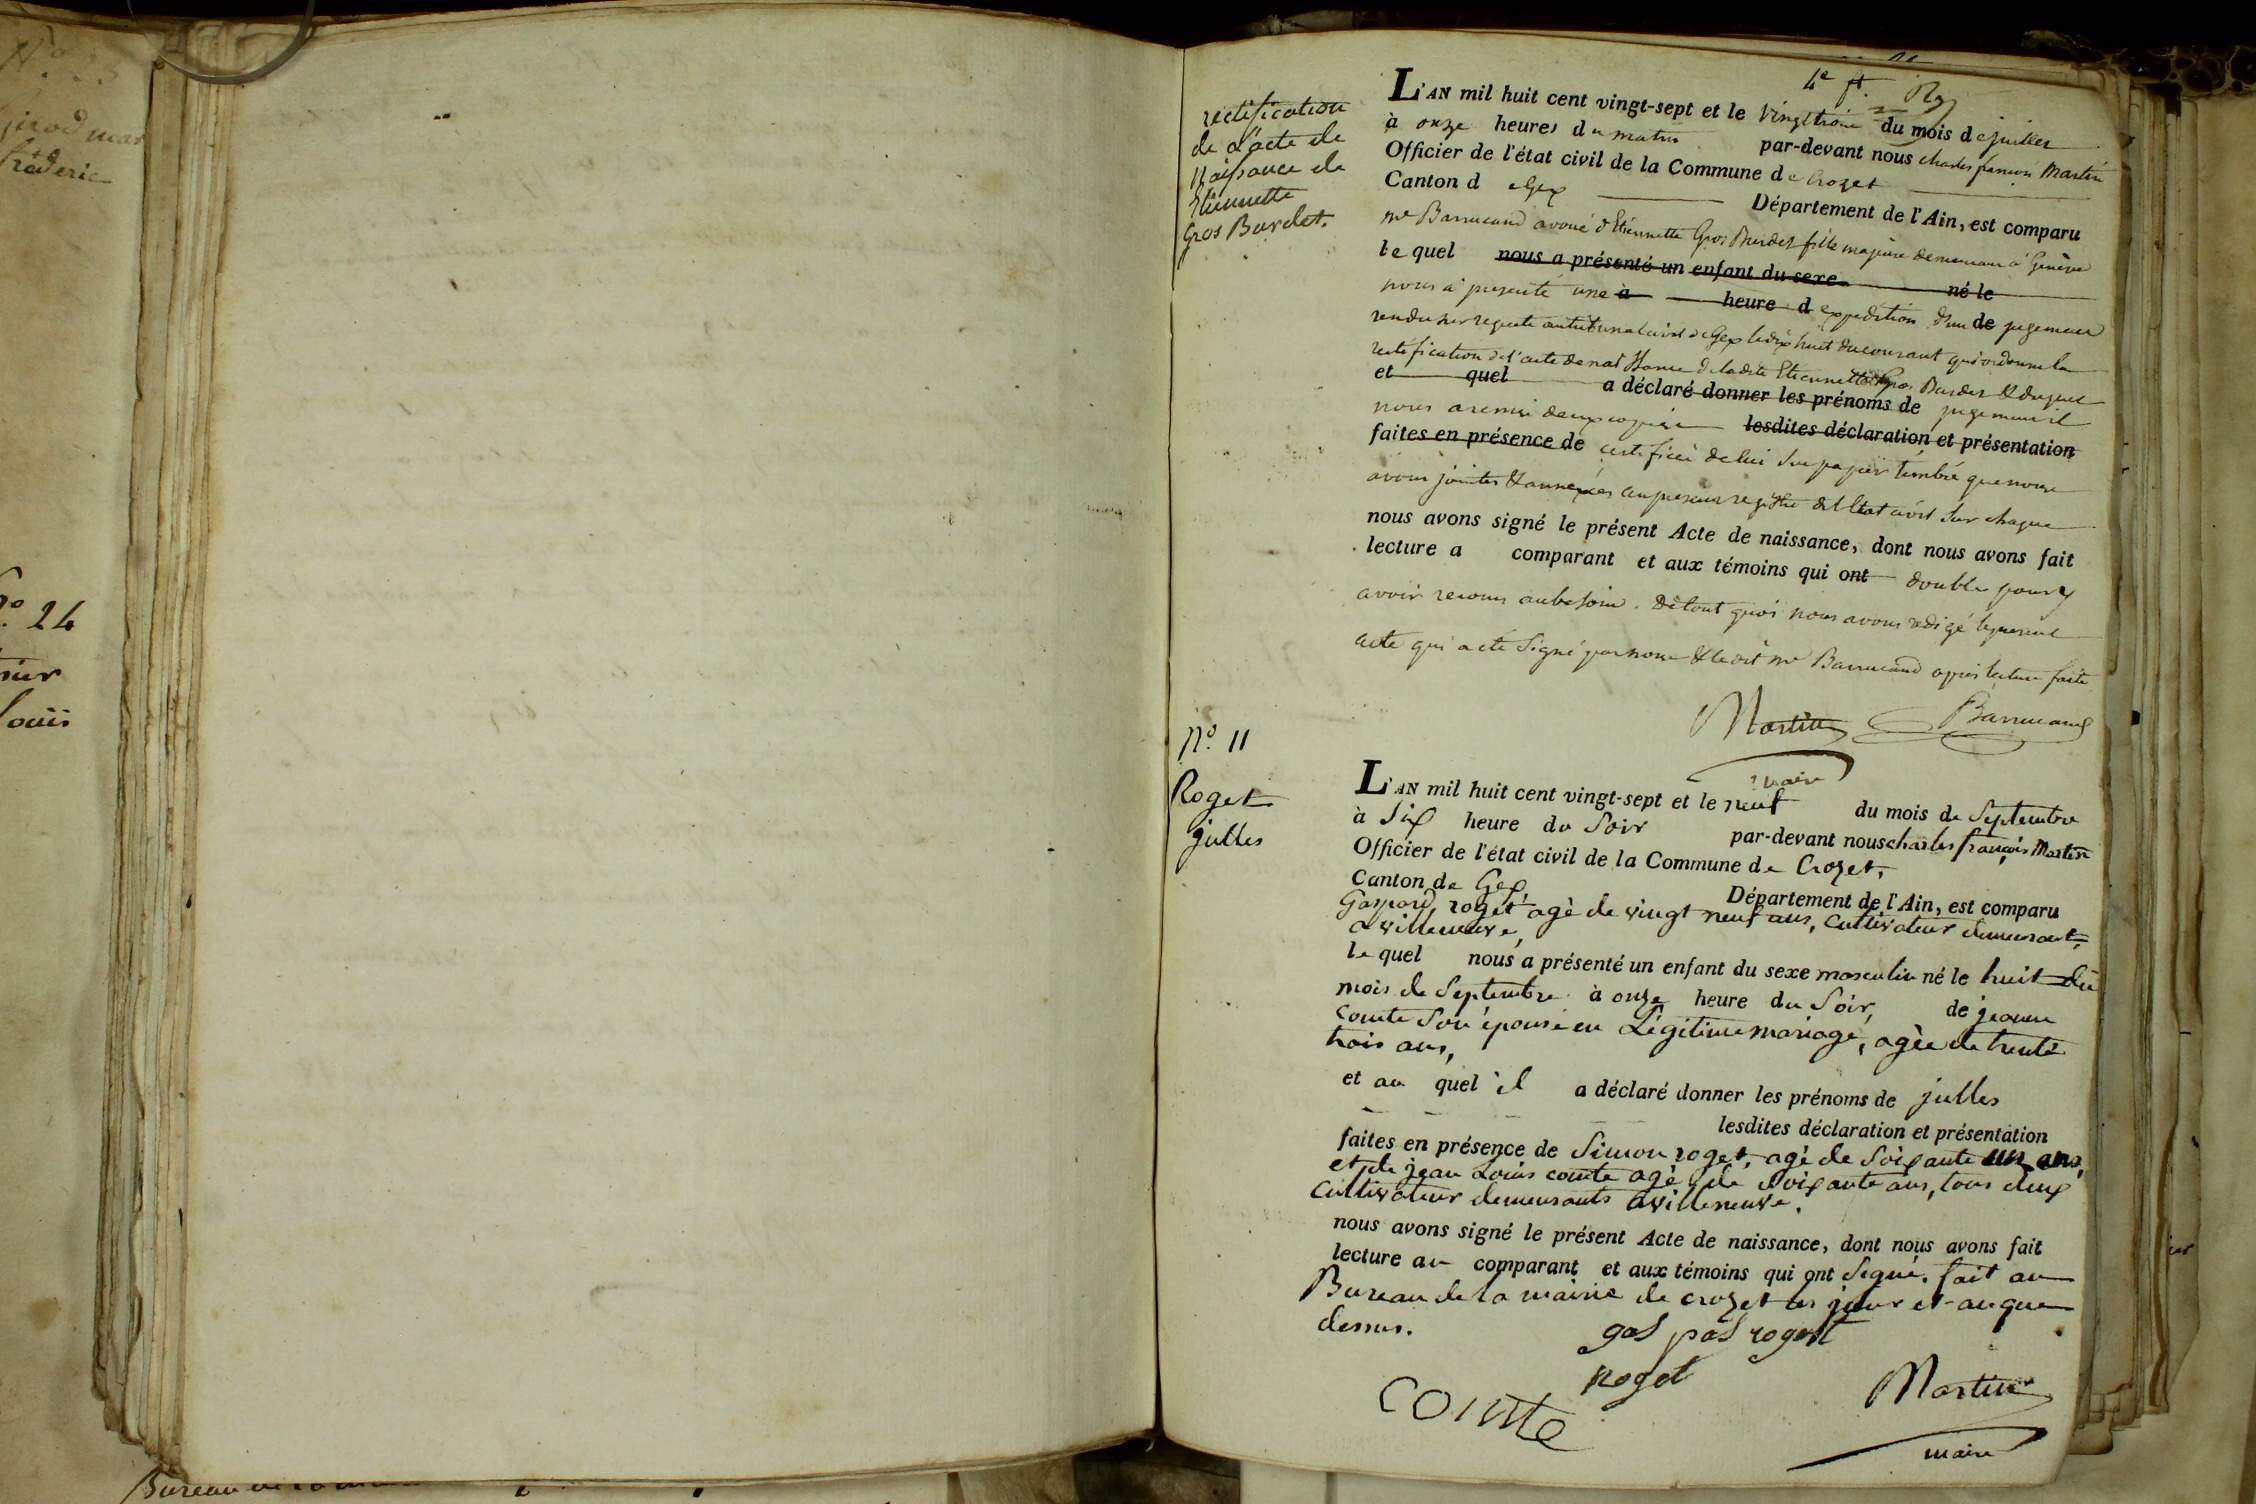 N° 23
girod mar
fréderic
N° 24
Louis
Bureau de la mairie
4e ft.
rectification
de l'acte de
naissance de
Etiennette
Gros Burdet.
L'AN mil huit cent vingt-sept et le vingt trois du mois de juillet
à onze heures du matin par-devant nous charles françois Martin
Officier de l'état civil de la Commune de Crozet
Canton de Gex Département de l'Ain, est comparu
me Barrucand avoué d'Etiennette Gros Burdet fille majeure demeurant à Genève
le quel nous a présenté un enfant du sexe né le
nous a présenté une à heure d expedition d'un de jugement
rendu sur requete au tribunal civil de Gex le dix huit du courant qui ordonne la
rectification de l'acte de naissance de ladite Etiennette Gros Burdet & duquel
et quel a déclaré donner les prénoms de jugement il
nous a remis deux copies lesdites déclaration et présentation
faites en présence de certifiées de lui sur papier timbré que nous
avons jointes & annexées au present registre de l'état civil sur chaque
nous avons signé le présent Acte de naissance, dont nous avons fait
lecture a comparant et aux témoins qui ont double pour y
avoir recours au besoin. De tout quoi nous avons redigé le present
acte qui a été signé par nous & le dit me Barrucand après lecture faite
Martin Barrucand
maire
N° 11
Roget
julles
L'AN mil huit cent vingt-sept et le neuf du mois de Septembre
à Six heure du Soir par-devant nous charles françois Martin
Officier de l'état civil de la Commune de Crozet,
Canton de Gex, Département de l'Ain, est comparu
Gaspard roget agé de vingt neuf ans, cultivateur demeurant
a villeneuve,
le quel nous a présenté un enfant du sexe masculin né le huit du
mois de Septembre à onze heure du Soir, de jeanne
comte Son épouse en Légitime mariage, agée de trente
trois ans,
et au quel il a déclaré donner les prénoms de julles
lesdites déclaration et présentation
faites en présence de Simon roget, agé de Soixante un ans,
et de jean Louis comte agé de Soixante ans, tous deux
cultivateur demeurants a villeneuve.
nous avons signé le présent Acte de naissance, dont nous avons fait
lecture au comparant et aux témoins qui ont Signé. fait au
Bureau de la mairie de crozet les jour et an que
dessus.
gas pas roget
Roget
Comte Martin
maire